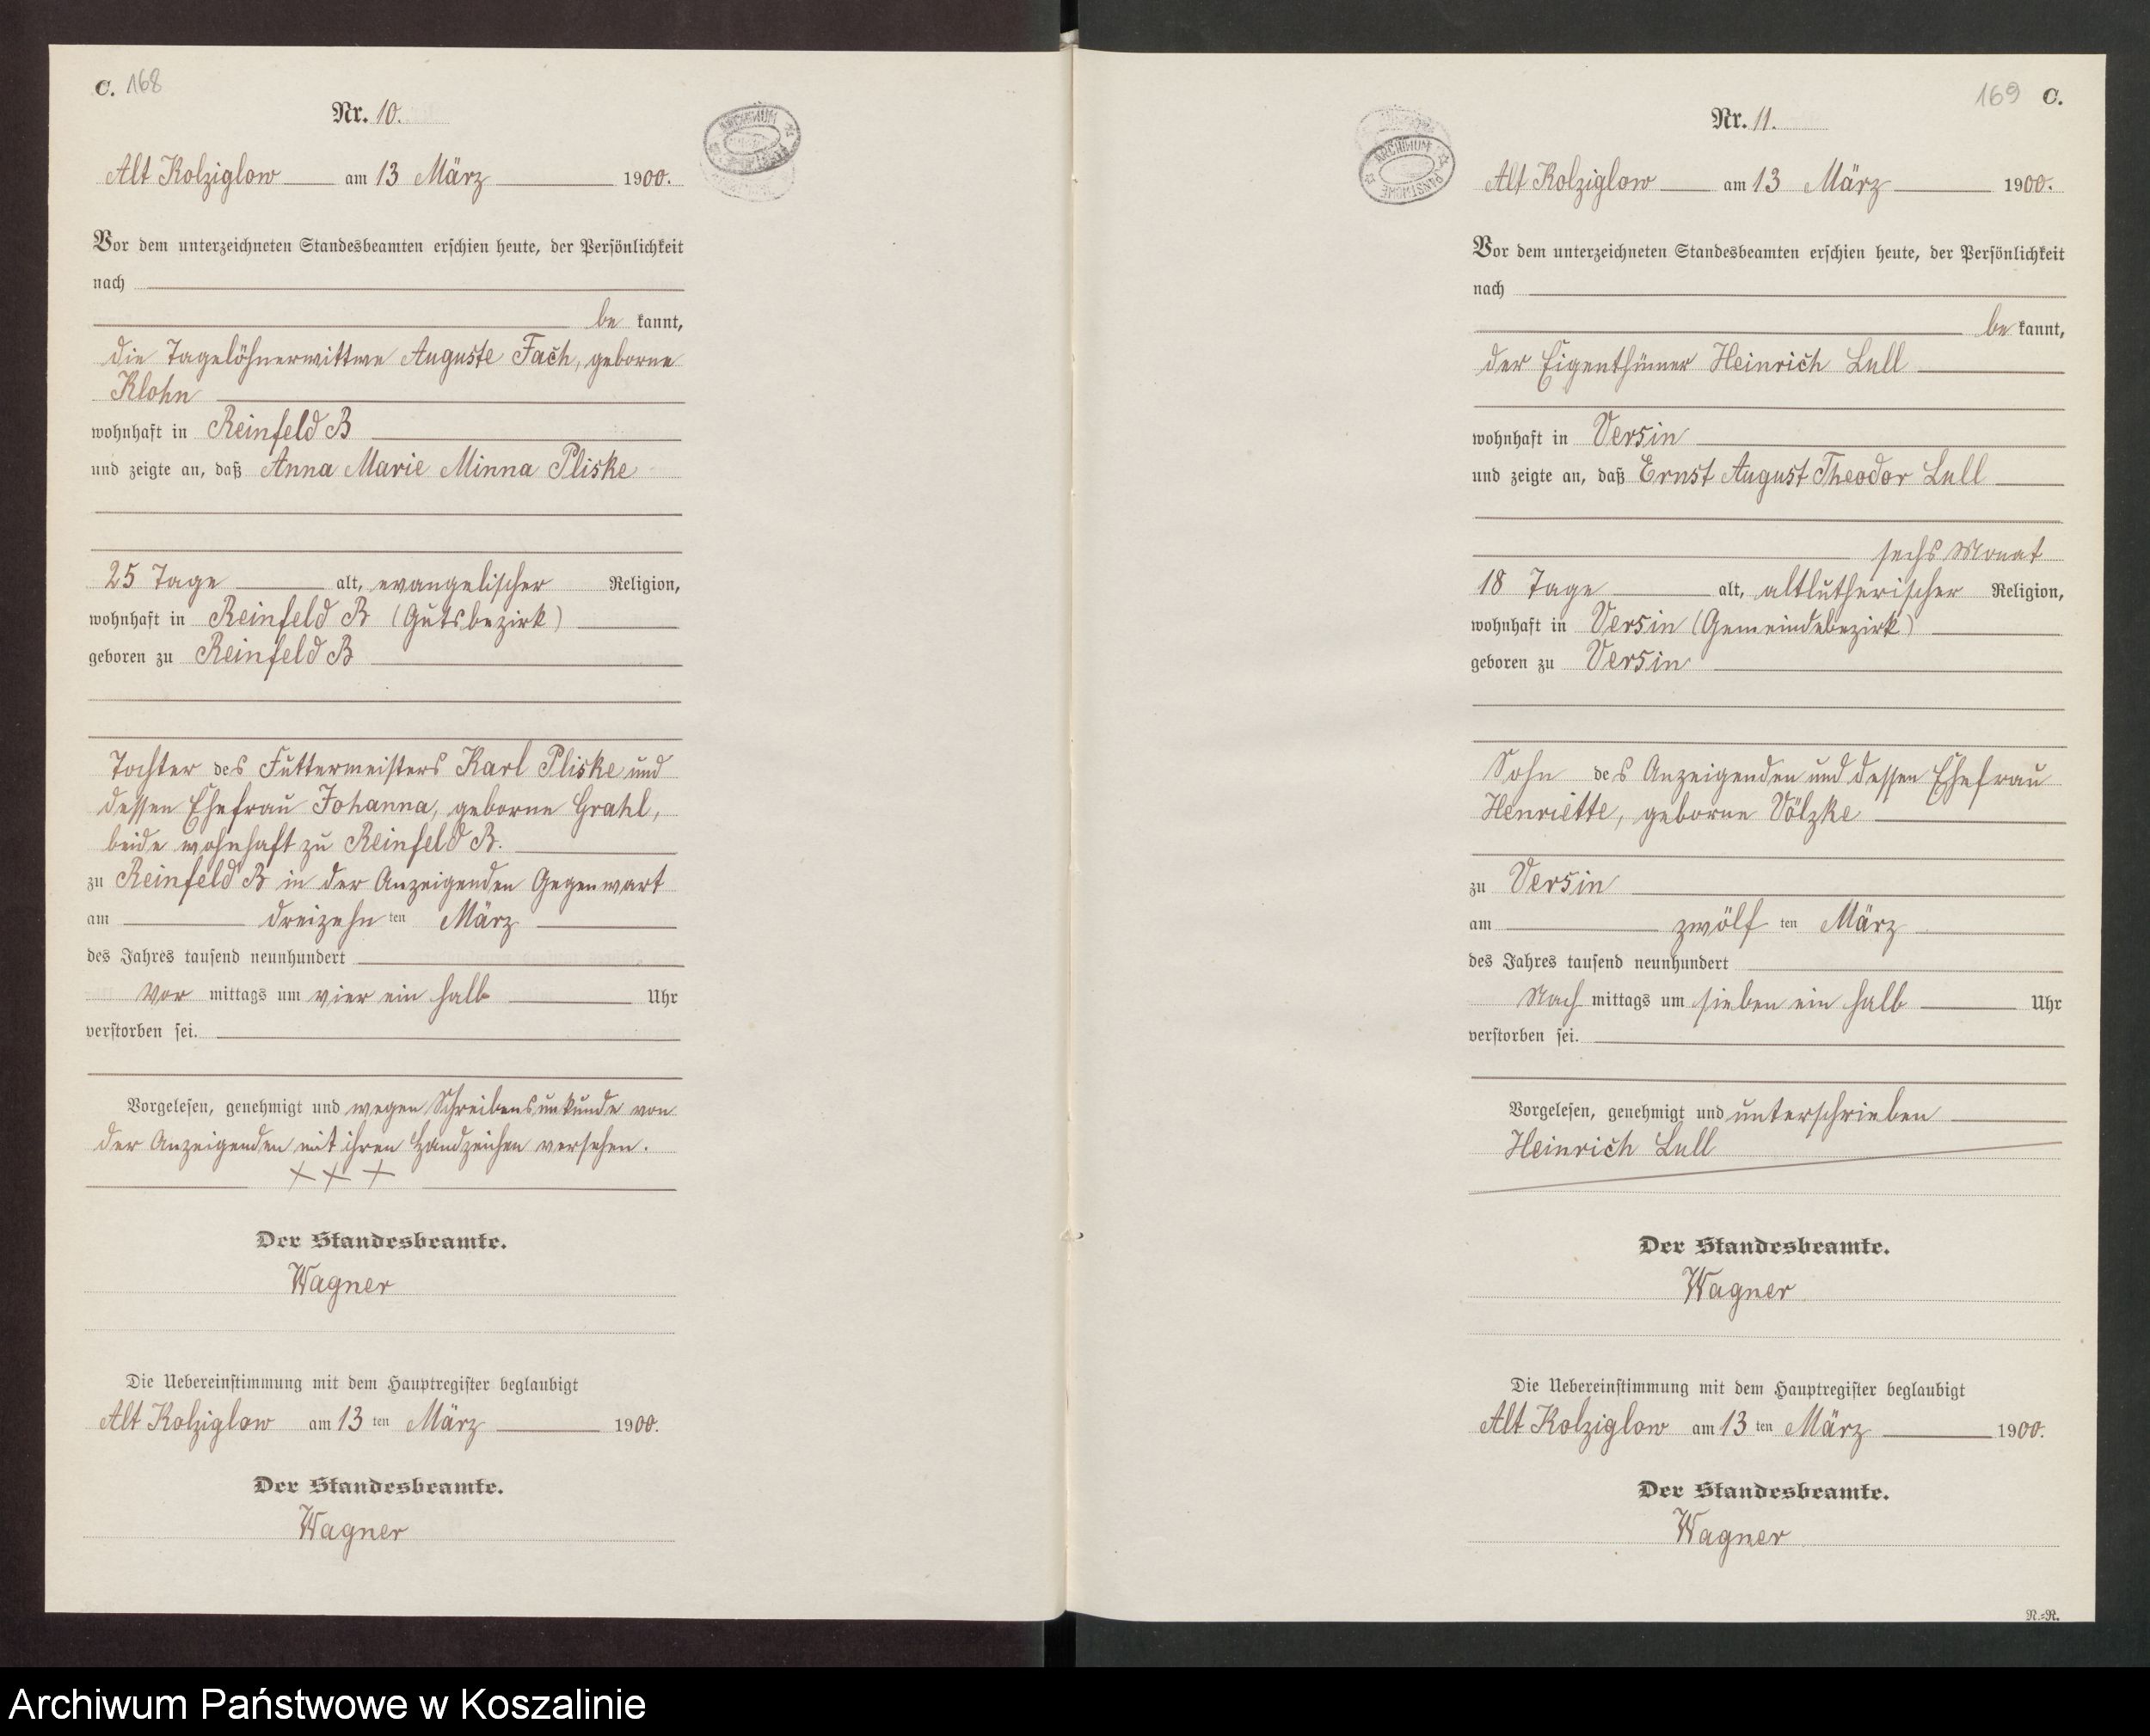 C. 168
Nr. 10.
Alt Kolziglow am 13 März 1900.
Vor dem unterzeichneten Standesbeamten erschien heute, der Persönlichkeit
nach
be kannt,
die Tagelöhnerwittwe Auguste Fach, geborne
Klohn
wohnhaft in Reinfeld B
und zeigte an, daß Anna Marie Minna Pliske
25 Tage alt, evangelischer Religion,
wohnhaft in Reinfeld B (Gutsbezirk)
geboren zu Reinfeld B
Tochter des Futtermeisters Karl Pliske und
dessen Ehefrau Johanna, geborne Grahl,
beide wohnhaft zu Reinfeld B.
zu Reinfeld B in der Anzeigenden Gegenwart
am dreizehn ten März
des Jahres tausend neunhundert
Vor mittags um vier ein halb Uhr
verstorben sei.
Vorgelesen, genehmigt und wegen Schreibensunkunde von
der Anzeigenden mit ihren Handzeichen versehen.
+ + +
Der Standesbeamte.
Wagner
Die Uebereinstimmung mit dem Hauptregister beglaubigt
Alt Kolziglow am 13 ten März 1900.
Der Standesbeamte.
Wagner
ARCHIWUM
169 C.
Nr. 11.
ARCHIWUM PAŃSTWOWE
Alt Kolziglow am 13 März 1900.
Vor dem unterzeichneten Standesbeamten erschien heute, der Persönlichkeit
nach
be kannt,
der Eigenthümer Heinrich Lull
wohnhaft in Versin
und zeigte an, daß Ernst August Theodor Lull
sechs Monat
18 Tage alt, altlutherischer Religion,
wohnhaft in Versin (Gemeindebezirk)
geboren zu Versin
Sohn des Anzeigenden und dessen Ehefrau
Henriette, geborne Völzke
zu Versin
am zwölf ten März
des Jahres tausend neunhundert
Nach mittags um sieben ein halb Uhr
verstorben sei.
Vorgelesen, genehmigt und unterschrieben
Heinrich Lull
Der Standesbeamte.
Wagner
Die Uebereinstimmung mit dem Hauptregister beglaubigt
Alt Kolziglow am 13 ten März 1900.
Der Standesbeamte.
Wagner
N.=R.
Archiwum Państwowe w Koszalinie